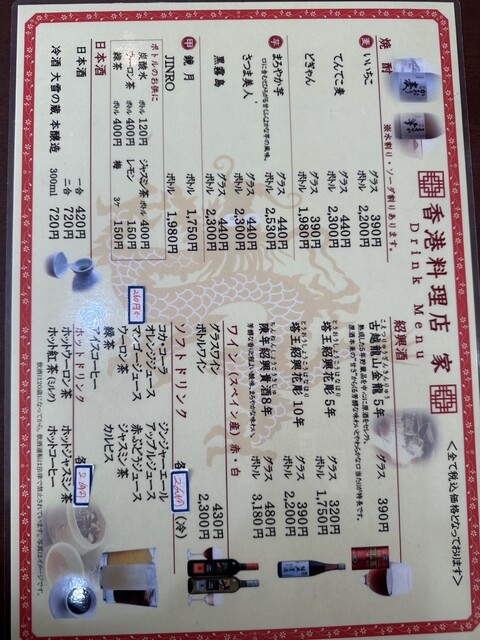 香港料理店 家
Drink Menu
<全て税込価格となっております>
焼酎
※水割り・ソーダ割りあります。
麦 いいちこ グラス 390円
ボトル 2,200円
てんてこ麦 グラス 440円
ボトル 2,300円
どぎゃん グラス 390円
ボトル 1,980円
芋 まろやか芋 グラス 440円
ボトル 2,530円
さつま美人 グラス 440円
ボトル 2,300円
黒霧島 グラス 440円
ボトル 2,300円
甲 鏡月 ボトル 1,750円
JINRO ボトル 1,980円
ボトルのお供に
炭酸水 ボトル 120円 ジャスミン茶 ボトル 400円
ウーロン茶 ボトル 400円 レモン 150円
緑茶 ボトル 400円 梅 3ケ 150円
日本酒
日本酒 一合 420円
二合 720円
冷酒 大雪の蔵 本醸造 300ml 720円
紹興酒
古越龍山金龍 5年 グラス 390円
塔王紹興花彫 5年 グラス 320円
ボトル 1,750円
塔王紹興花彫 10年 グラス 390円
ボトル 2,200円
陳年紹興貴酒8年 グラス 480円
ボトル 3,180円
ワイン（スペイン産）赤・白
グラスワイン 430円
ボトルワイン 2,300円
ソフトドリンク 各 260円 (冷)
コカ・コーラ ジンジャーエール
オレンジジュース アップルジュース
マンゴージュース 赤ぶどうジュース
ウーロン茶 ジャスミン茶
緑茶 カルピス
アイスコーヒー
ホットドリンク
ホットウーロン茶 ホットジャスミン茶
ホット紅茶(ミルク) ホットコーヒー
飲酒は20歳になってから。飲酒運転は法律で禁止されています。写真はイメージです。